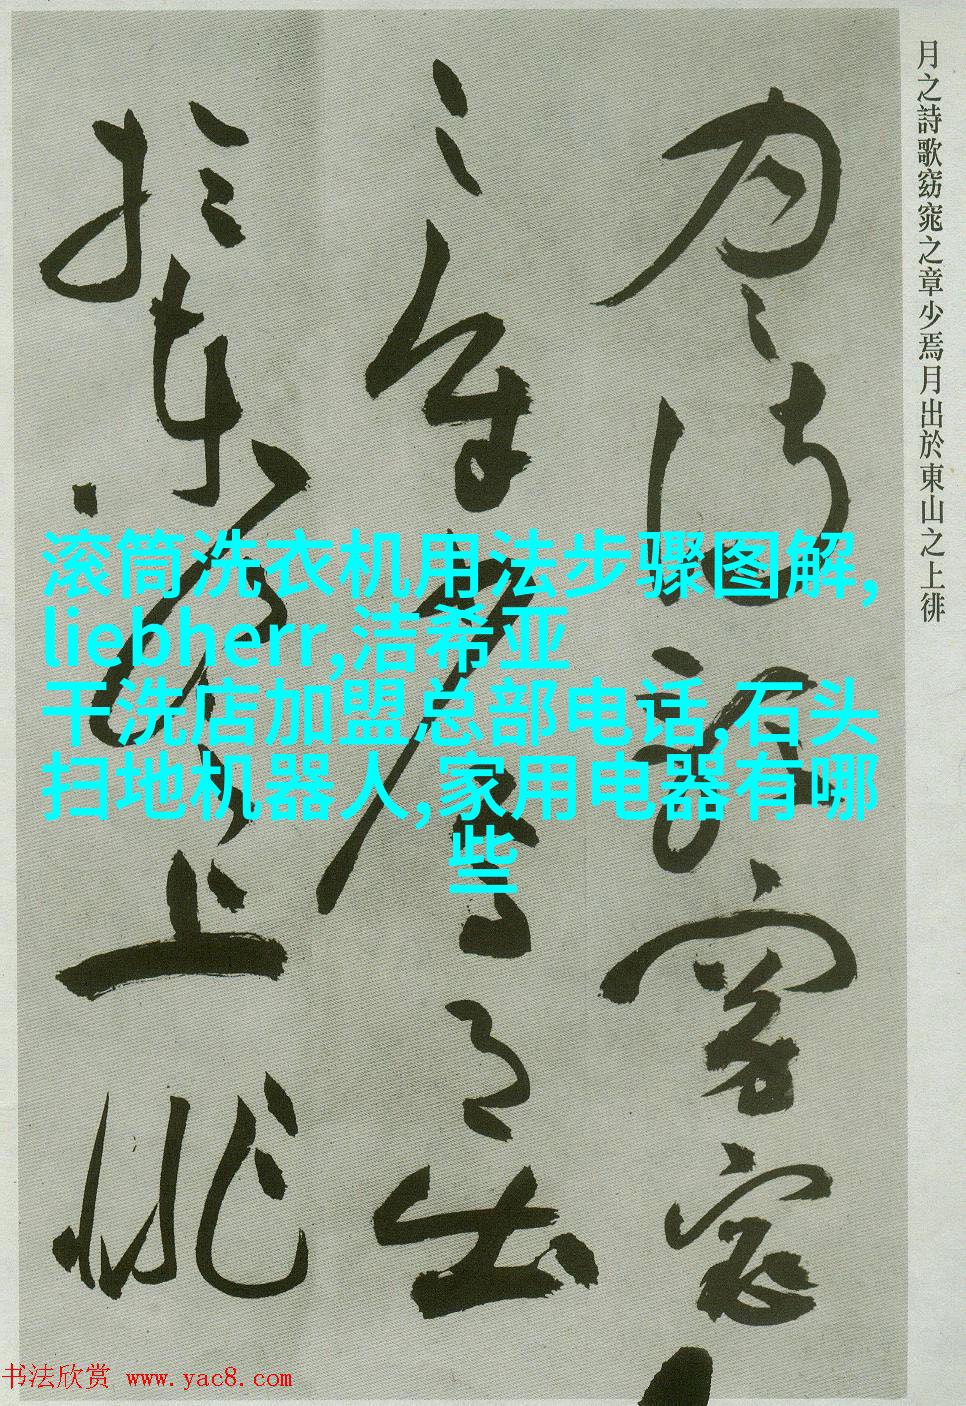 月之詩歌窈窕之章少焉月出於東山之上徘
月之詩歌窈窕
之章少焉月出
於東山之上徘
滚筒洗衣机用法步骤图解,
liebherr,洁希亚
干洗店加盟总部电话,石头
扫地机器人,家用电器有哪
些
书法欣赏 www.yac8.com